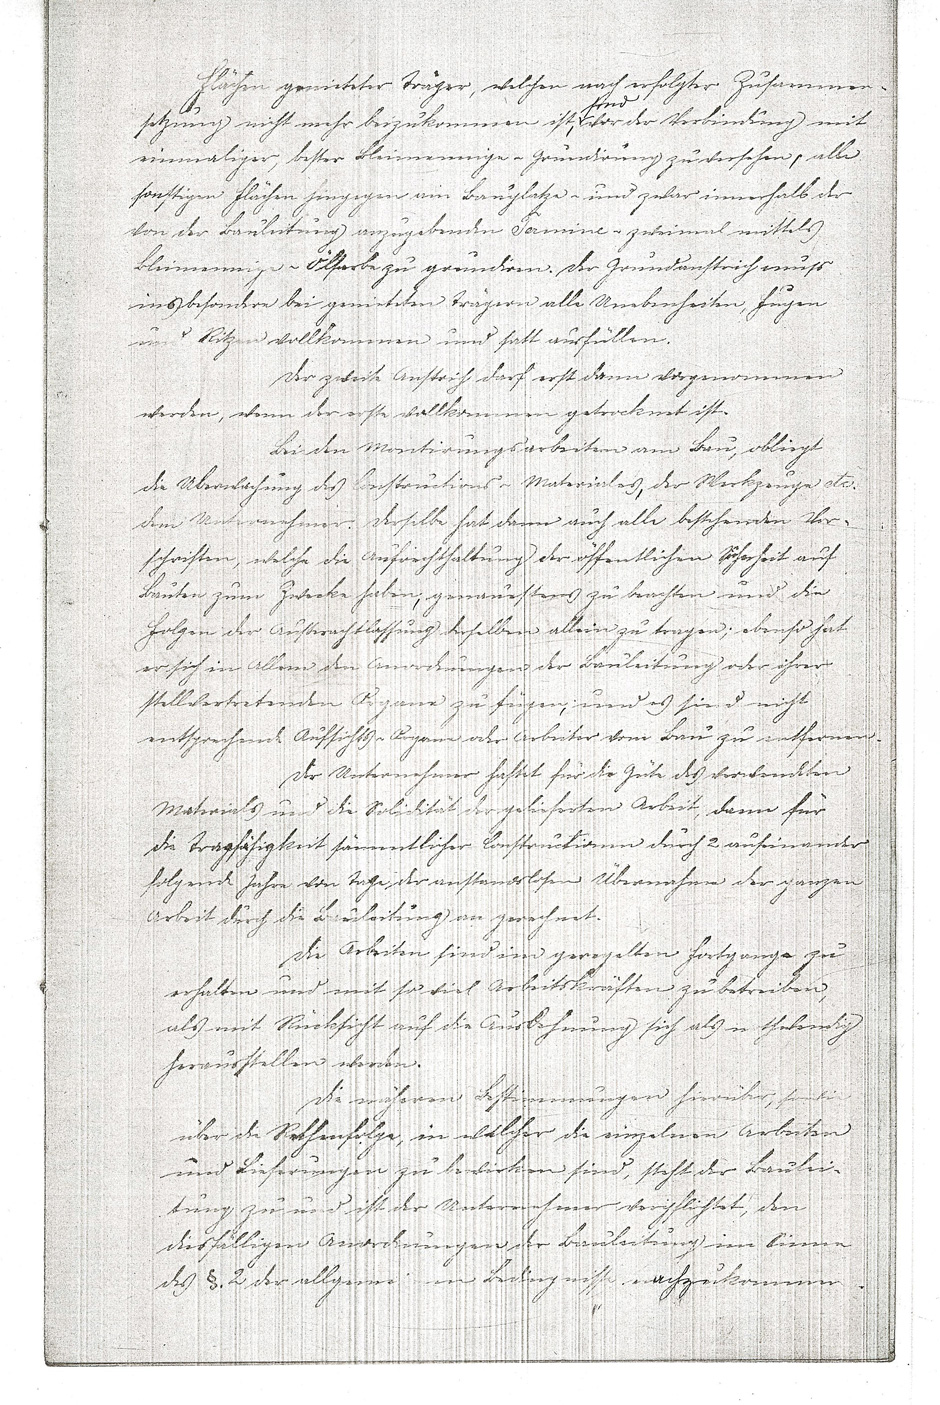 Flächen genieteter Träger, welchen nach erfolgter Zusammen-
setzung nicht mehr beizukommen ist, sind vor der Verbindung mit
einmaliger, bester Bleimennige-Grundirung zu versehen, alle
sonstigen Flächen hingegen am Bauplatze - und zwar innerhalb der
von der Bauleitung anzugebenden Termine - zweimal mittels
Bleimennige-Ölfarbe zu grundiren. Der Grundanstrich muß
insbesondere bei genieteten Trägern alle Unebenheiten, Fugen
und Ritzen vollkommen und satt ausfüllen.
Der zweite Anstrich darf erst dann vorgenommen
werden, wenn der erste vollkommen getrocknet ist.
Bei den Montirungsarbeiten am Bau, obliegt
die Überwachung des Constructions-Materiales, der Werkzeuge etc.
dem Unternehmer. Derselbe hat dann auch alle bestehenden Vor-
schriften, welche die Aufrechthaltung der öffentlichen Sicherheit auf
Bauten zum Zwecke haben, genauestens zu beachten und die
Folgen der Außerachtlassung derselben allein zu tragen; ebenso hat
er sich in Allem den Anordnungen der Bauleitung oder ihrer
stellvertretenden Organe zu fügen, und es sind nicht
entsprechende Aufsichts-Organe oder Arbeiter vom Bau zu entfernen.
Der Unternehmer haftet für die Güte des verwendeten
Materials und die Solidität der gelieferten Arbeit, dann für
die Tragfähigkeit sämmtlicher Constructionen durch 2 aufeinander
folgende Jahre vom Tage der anstandslosen Übernahme der ganzen
Arbeit durch die Bauleitung an gerechnet.
Die Arbeiten sind im geregelten Fortgange zu
erhalten und mit so viel Arbeitskräften zu betreiben,
als mit Rücksicht auf die Ausdehnung sich als nothwendig
herausstellen werden.
Die näheren Bestimmungen hierüber, sowie
über die Reihenfolge, in welcher die einzelnen Arbeiten
und Lieferungen zu bewirken sind, steht der Baulei-
tung zu und ist der Unternehmer verpflichtet, den
diesfälligen Anordnungen der Bauleitung im Sinne
des §. 2 der allgemeinen Bedingnisse nachzukommen.